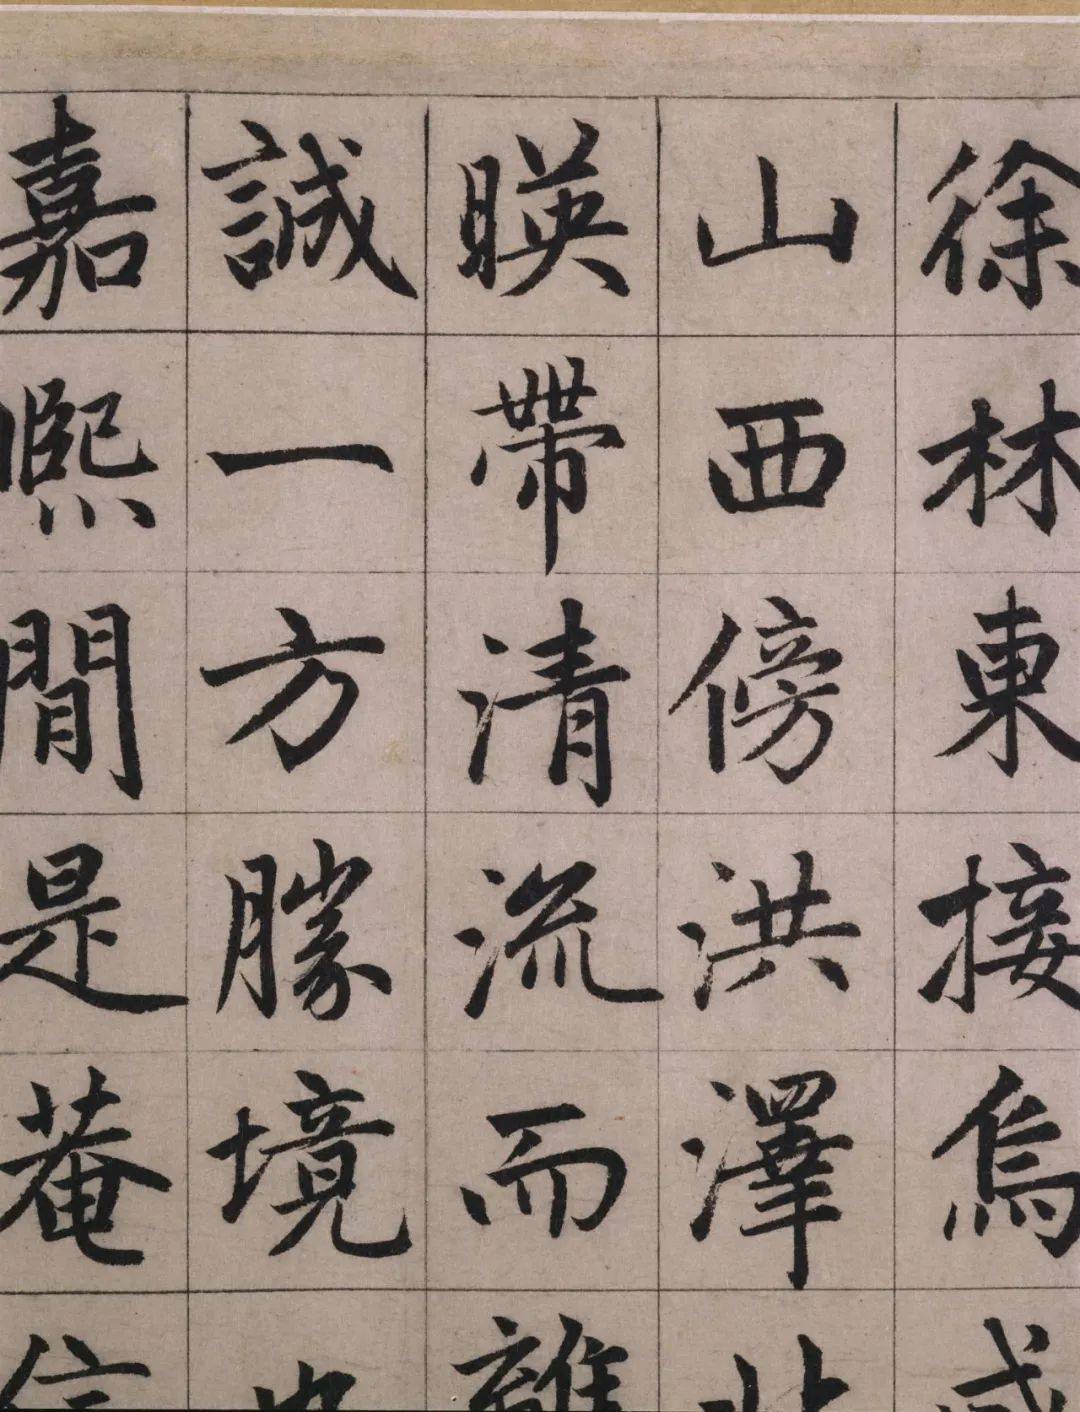 徐林東接烏戍
山西傍洪澤北
暎帶清流而離
誠一方勝境也
嘉熙間是菴信